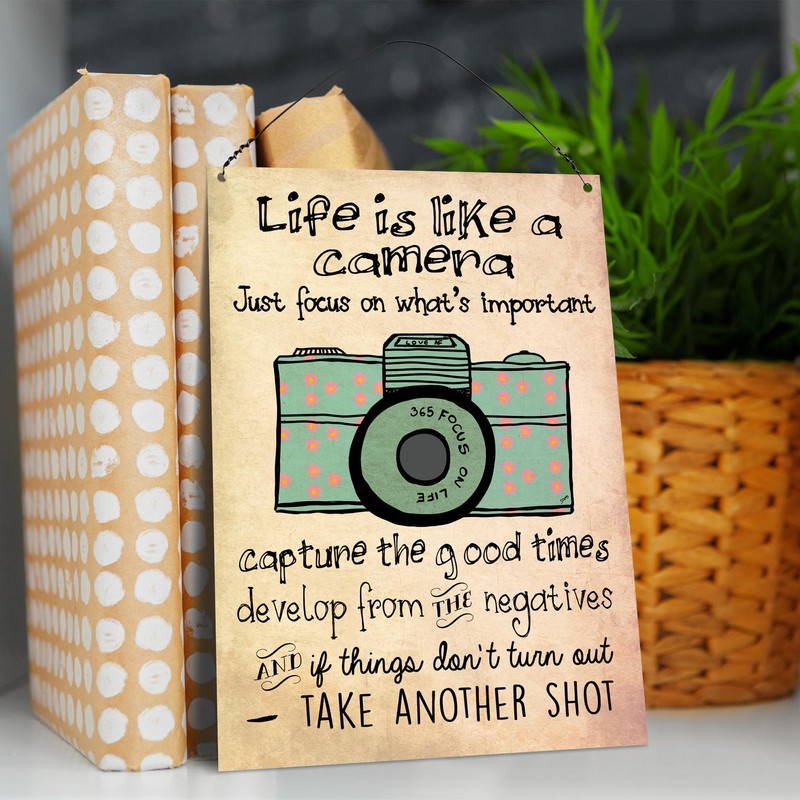 Life is like a
camera
Just focus on what's important
LOVE ME
365 FOCUS ON LIFE
capture the good times
develop from THE negatives
AND if things don't turn out
– TAKE ANOTHER SHOT